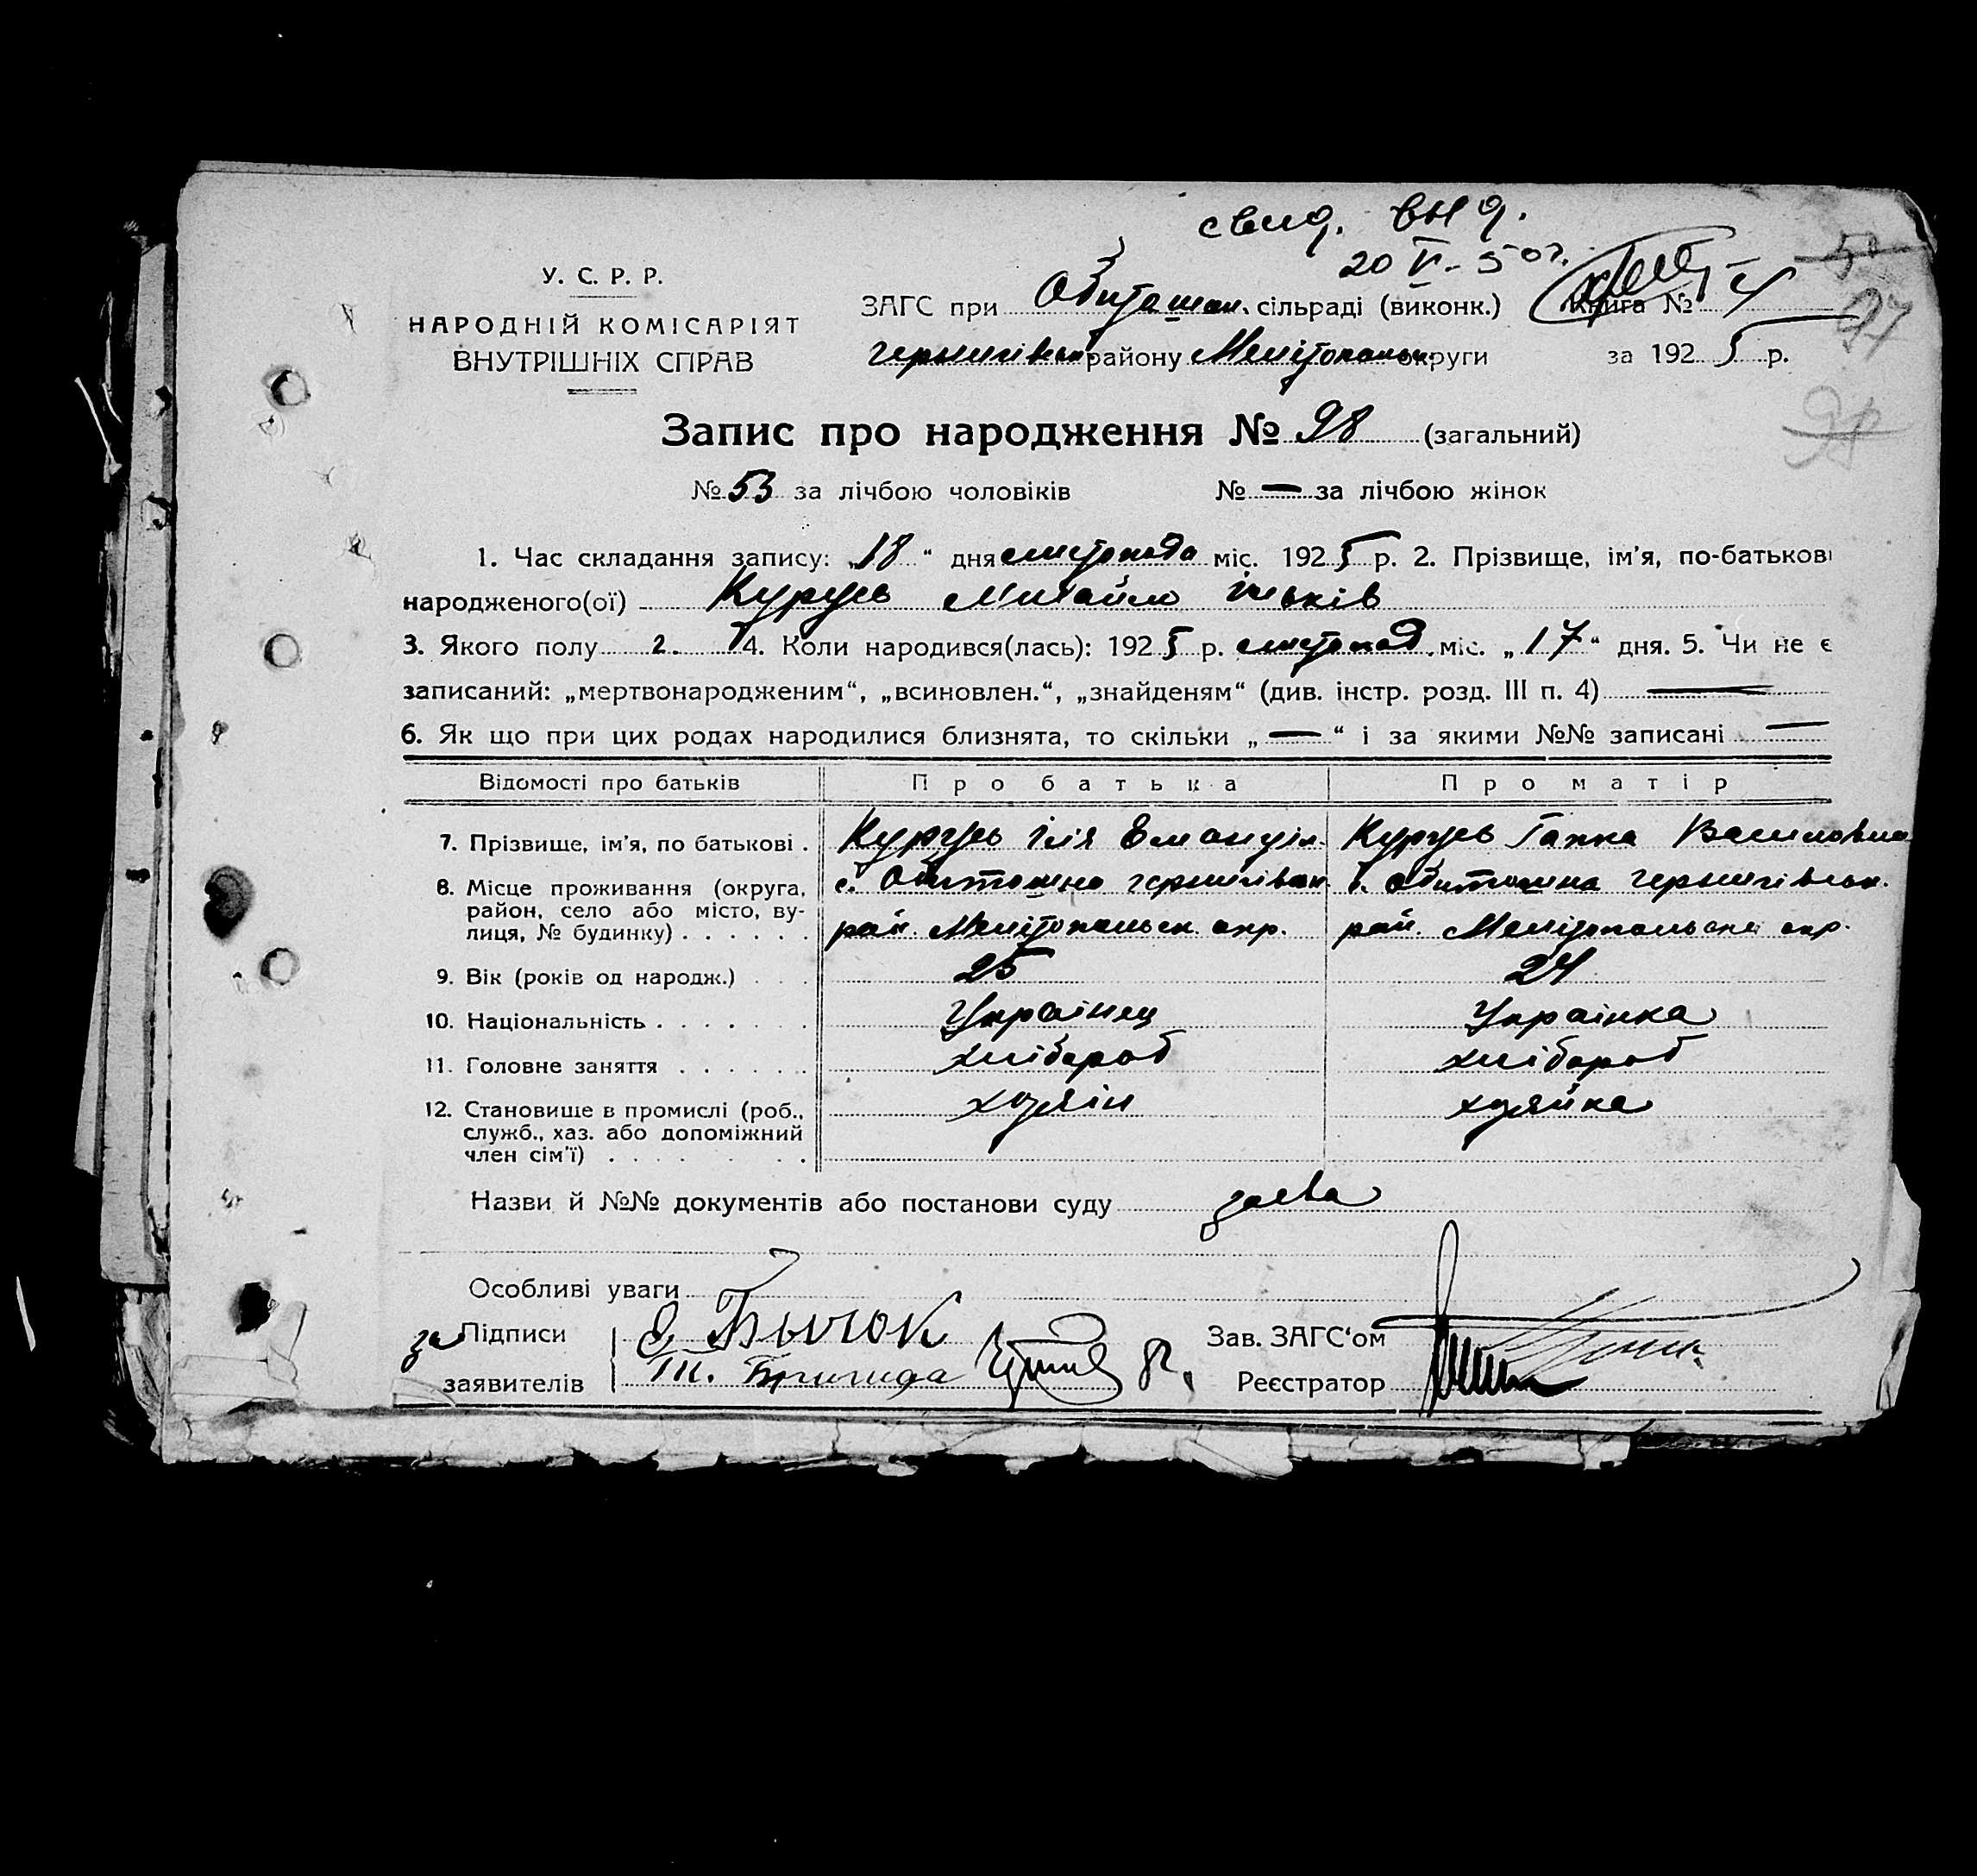 свид. выд.
20 V - 50 г.
У. С. Р. Р.
НАРОДНІЙ КОМІСАРІЯТ
ВНУТРІШНІХ СПРАВ
ЗАГС при Обиточан. сільраді (виконк.) Книга № 4
Чернигівськ району Мелітопольськ. округи за 1925 р.
97
98
Запис про народження № 98 (загальний)
№ 53 за лічбою чоловіків № — за лічбою жінок
1. Час складання запису: „18“ дня листопада міс. 1925 р. 2. Прізвище, ім’я, по-батькові
народженого(ої) Курусь Михайло Ільків
3. Якого полу ч. 4. Коли народився(лась): 1925 р. листопад. міс. „17“ дня. 5. Чи не є
записаний: „мертвонародженим“, „всиновлен.“, „знайденям“ (див. інстр. розд. III п. 4) —
6. Як що при цих родах народилися близнята, то скільки „—“ і за якими №№ записані —
Відомості про батьків Про батька Про матір
7. Прізвище, ім’я, по батькові . Курусь Ілія Емануіл. Курусь Гапка Василовна
8. Місце проживання (округа, с. Обиточно чернигівськ. с. Обиточна чернигівськ.
район, село або місто, ву-
лиця, № будинку) . . . . . . рай. Мелітопольськ. окр. рай. Мелітопольська окр.
9. Вік (років од народж.) . . . 25 24
10. Національність . . . . . . . Українец Українка
11. Головне заняття . . . . . . хлібороб хлібороб
12. Становище в промислі (роб., хозяін хозяйка
служб., хаз. або допоміжний
член сім’ї) . . . . . . . .
Назви й №№ документів або постанови суду заєва
Особливі уваги
за Підписи Зав. ЗАГС‘ом
заявителів Т. Реєстратор